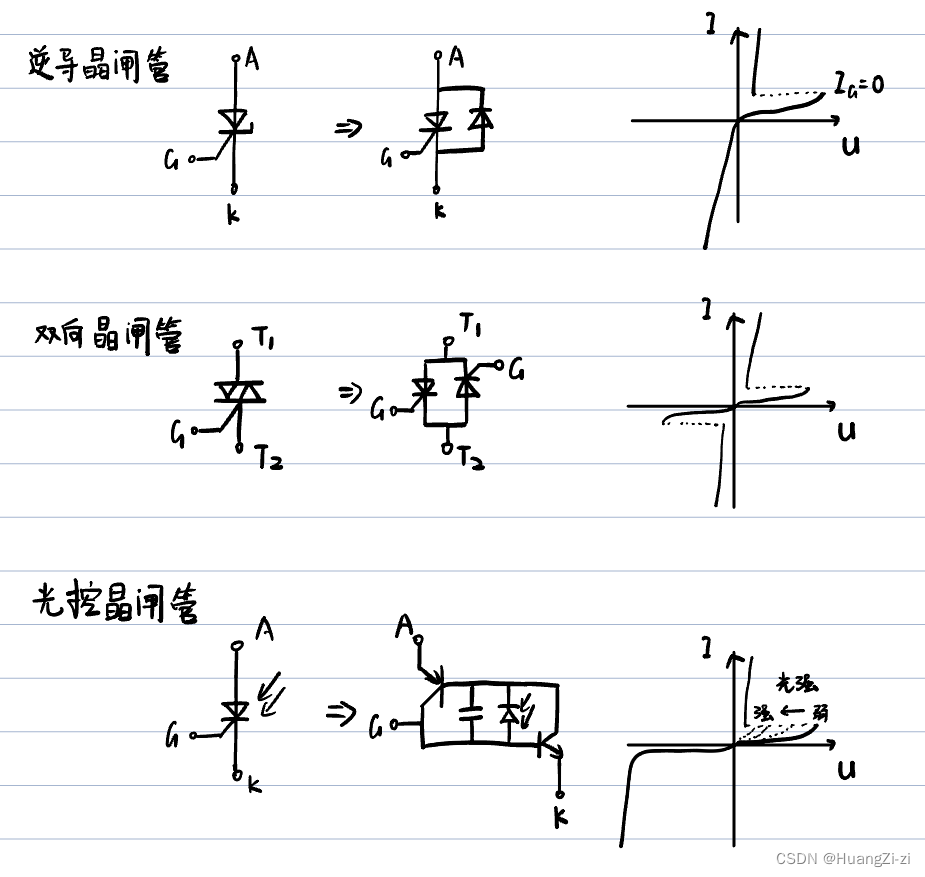 逆导晶闸管
A
G
K
⇒
A
G
K
I
I_G=0
U
双向晶闸管
T₁
G
T₂
⇒
T₁
G
G
T₂
I
U
光控晶闸管
A
G
K
⇒
A
G
K
I
光强
强 ← 弱
U
CSDN @HuangZi-zi